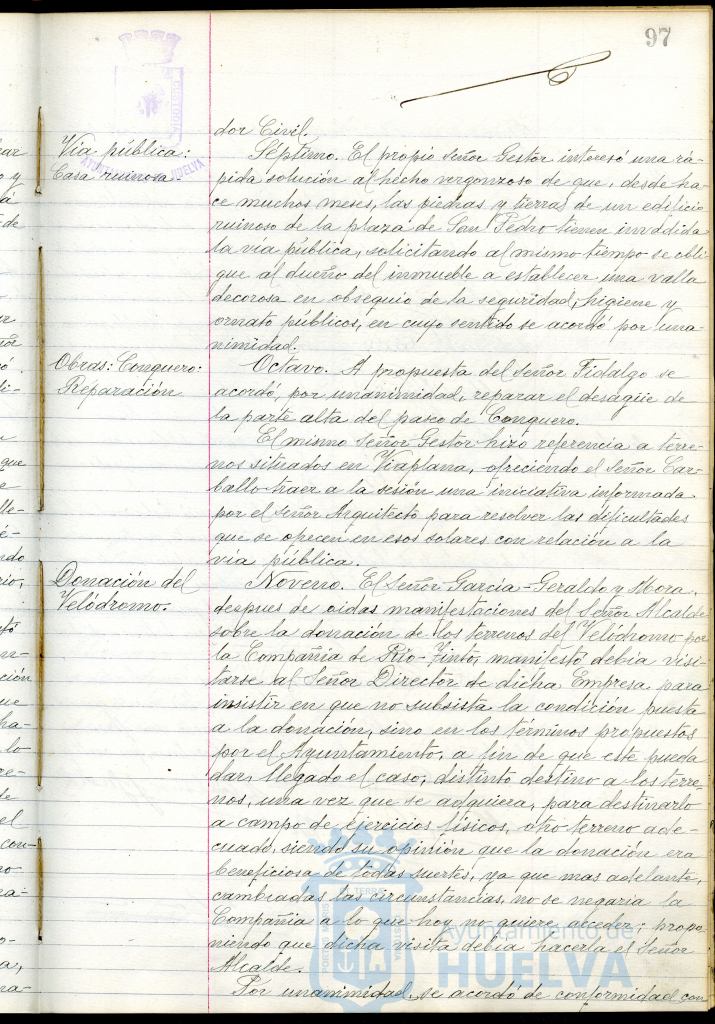 97
dor Civil.
Via pública:
Casa ruinosa.
Séptimo. El propio Señor Gestor interesó una rá-
pida solución al hecho vergonzoso de que, desde ha-
ce muchos meses, las piedras y tierras de un edificio
ruinoso de la plaza de San Pedro tienen invadida
la vía pública, solicitando al mismo tiempo se obli
gue al dueño del inmueble a establecer una valla
decorosa en obsequio de la seguridad, higiene y
ornato públicos, en cuyo sentido se acordó por una-
nimidad.
Obras: Conquero:
Reparación
Octavo. A propuesta del Señor Fidalgo se
acordó, por unanimidad, reparar el desagüe de
la parte alta del paseo de Conquero.
El mismo Señor Gestor hizo referencia a terre-
nos situados en Viaplana, ofreciendo el Señor Car-
ballo traer a la sesión una iniciativa informada
por el Señor Arquitecto para resolver las dificultades
que se ofrecen en esos solares con relación a la
vía pública.
Donación del
Velódromo.
Noveno. El Señor Garcia-Geraldo y Mora,
despues de oidas manifestaciones del Señor Alcalde
sobre la donación de los terrenos del Velódromo por
la Compañia de Rio-Tinto, manifestó debía visi-
tarse al Señor Director de dicha Empresa para
insistir en que no subsista la condición puesta
a la donación, sino en los términos propuestos
por el Ayuntamiento, a fin de que este pueda
dar, llegado el caso, distinto destino a los terre-
nos, una vez que se adquiera, para destinarlo
a campo de ejercicios físicos, otro terreno ade-
cuado, siendo su opinión que la donación era
beneficiosa de todas suertes, ya que mas adelante,
cambiadas las circunstancias, no se negaria la
Compañia a lo que hoy no quiere acceder; propo-
niendo que dicha visita debia hacerla el Señor
Alcalde.
Por unanimidad, se acordó de conformidad con
Ayuntamiento de
HUELVA